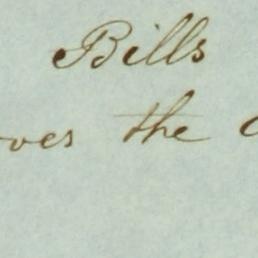 Bills
oves the